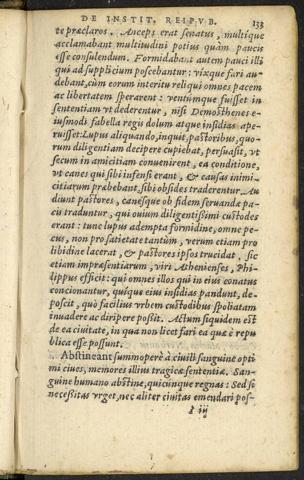 DE INSTIT, REIPVB. 133
te præclaros. Anceps erat senatus, multique
acclamabant multitudini potius quàm paucis
esse consulendum. Formidabant autem pauci illi
qui ad supplicium poscebantur: vixque fari au-
debat, cùm eorum interitu reliqui omnes pacem
ac libertatem sperarent: ventúmque fuisset in
sententiam vt dederentur, nisi Demosthenes e-
iusmodi fabella regis dolum atque insidias ape-
ruisset: Lupus aliquando, inquit, pastoribus, quo-
rum diligentiam decipere cupiebat, persuasit, vt
secum in amicitiam conuenirent, ea conditione,
vt canes qui sibi infensi erant, & causas inimi-
citiarum præbebant, sibi obsides traderentur. Au
diunt pastores, canésque ob fidem seruandæ pa-
cis traduntur, qui ouium diligentissimi custodes
erant: tunc lupus adempta formidine, omne pe-
cus, non pro satietate tantùm, verum etiam pro
libidine lacerat, & pastores ipsos trucidat, sic
etiam impræsentiarum, viri Athenienses, Phi-
lippus efficit: qui omnes illos qui in eius conatus
concionantur, quíque eius insidias pandunt, de-
poscit, quò faciliùs vrbem custodibus spoliatam
inuadere ac diripere possit. Actum siquidem est
de ea ciuitate, in qua non licet fari ea quæ è repu
blica esse possunt.
Abstineant summoperè à ciuili sanguine opti
mi ciues, memores illius tragicæ sententiæ. San-
guine humano abstine, quicunque regnas: Sed si
necessitas vrget, nec aliter ciuitas emendari pos-
ſ iij